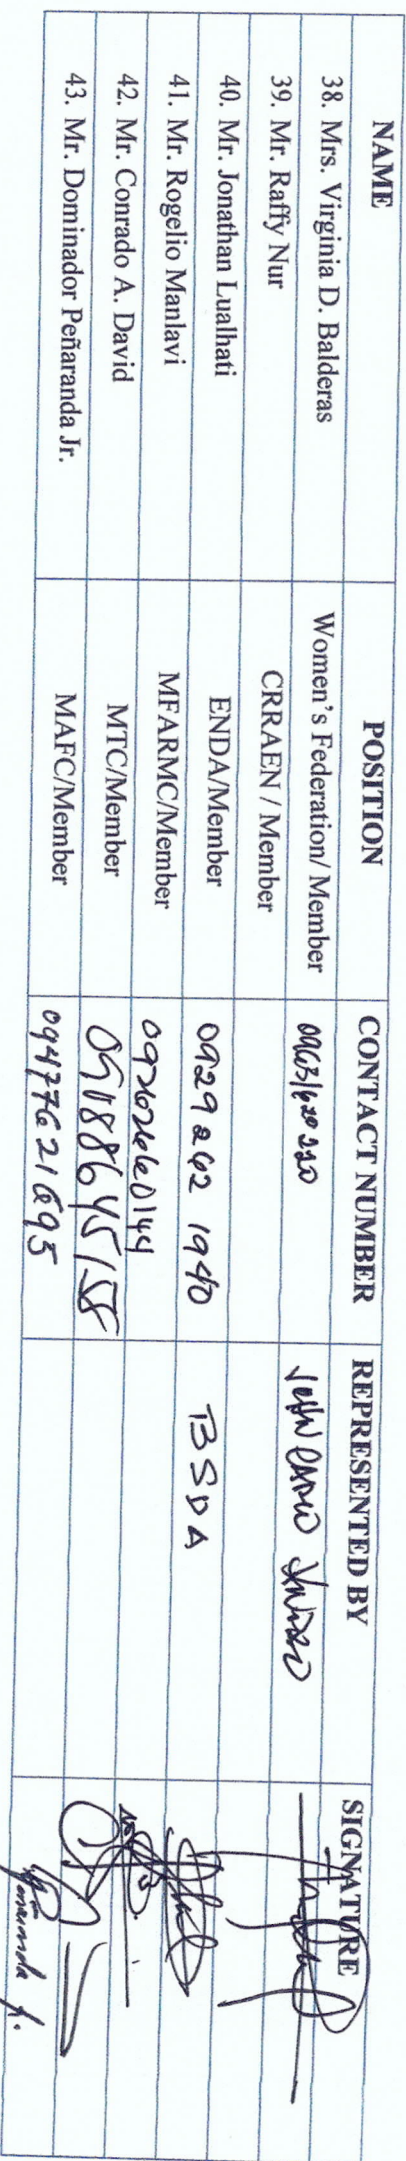 NAME POSITION CONTACT NUMBER REPRESENTED BY SIGNATURE
38. Mrs. Virginia D. Balderas Women's Federation/ Member
39. Mr. Raffy Nur CRRAEN / Member
40. Mr. Jonathan Lualhati ENDA/Member 0929 262 1940 BSDA
41. Mr. Rogelio Manlavi MFARMC/Member 09262660144
42. Mr. Conrado A. David MTC/Member 09188645158
43. Mr. Dominador Peñaranda Jr. MAFC/Member 09477621695